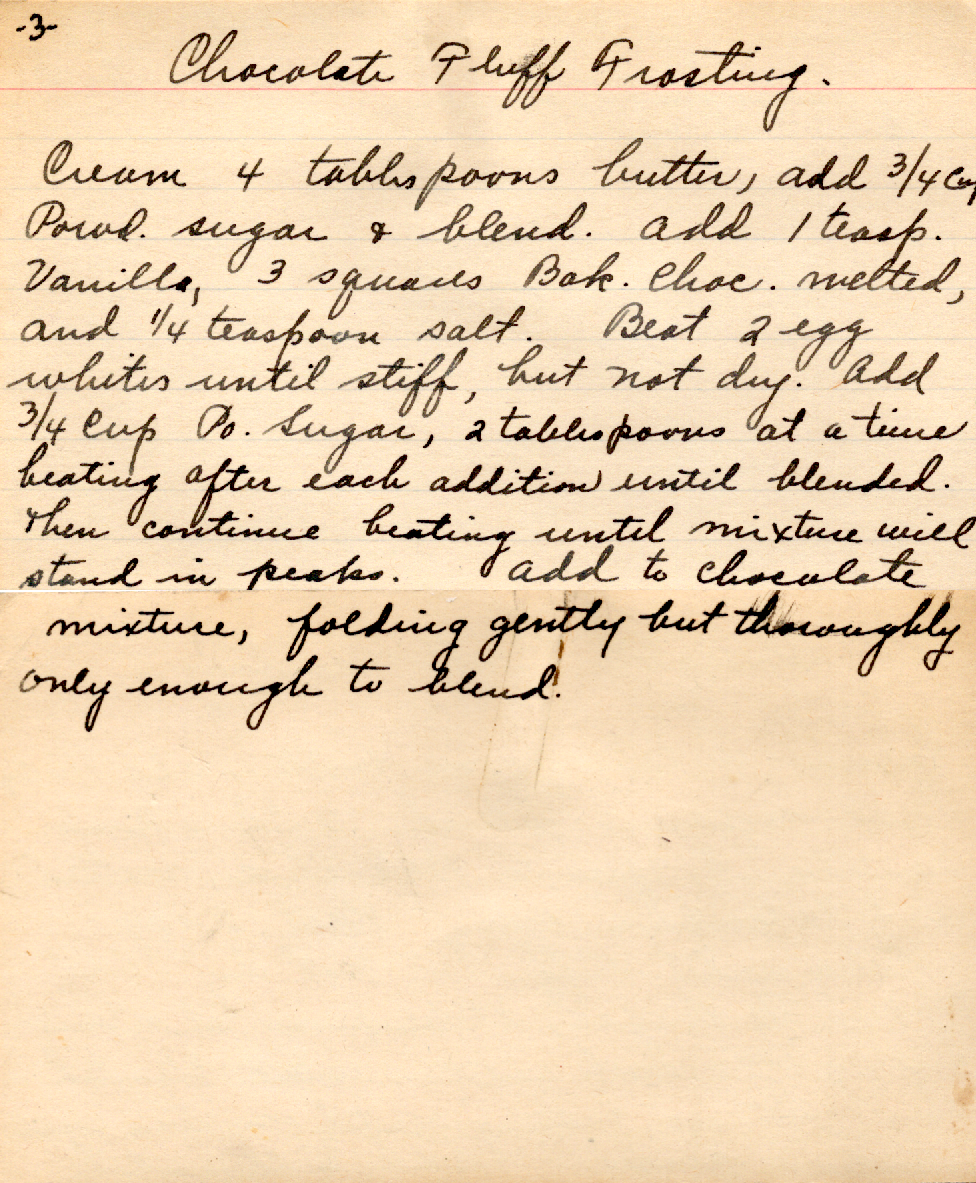 -3-
Chocolate Fluff Frosting.
Cream 4 tablespoons butter, add 3/4 Cup
Powd. sugar & blend. Add 1 teasp.
Vanilla, 3 squares Bak. Choc. melted,
and 1/4 teaspoon salt. Beat 2 egg
whites until stiff, but not dry. Add
3/4 Cup Po. Sugar, 2 tablespoons at a time
beating after each addition until blended.
Then continue beating until mixture will
stand in peaks. Add to chocolate
mixture, folding gently but thoroughly
only enough to blend.